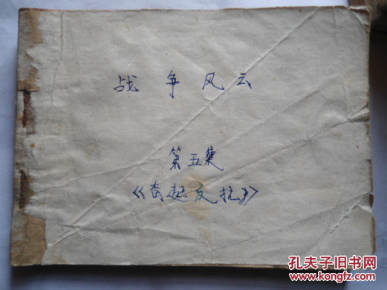 战争风云
第五集
《奋起反抗》
孔夫子旧书网